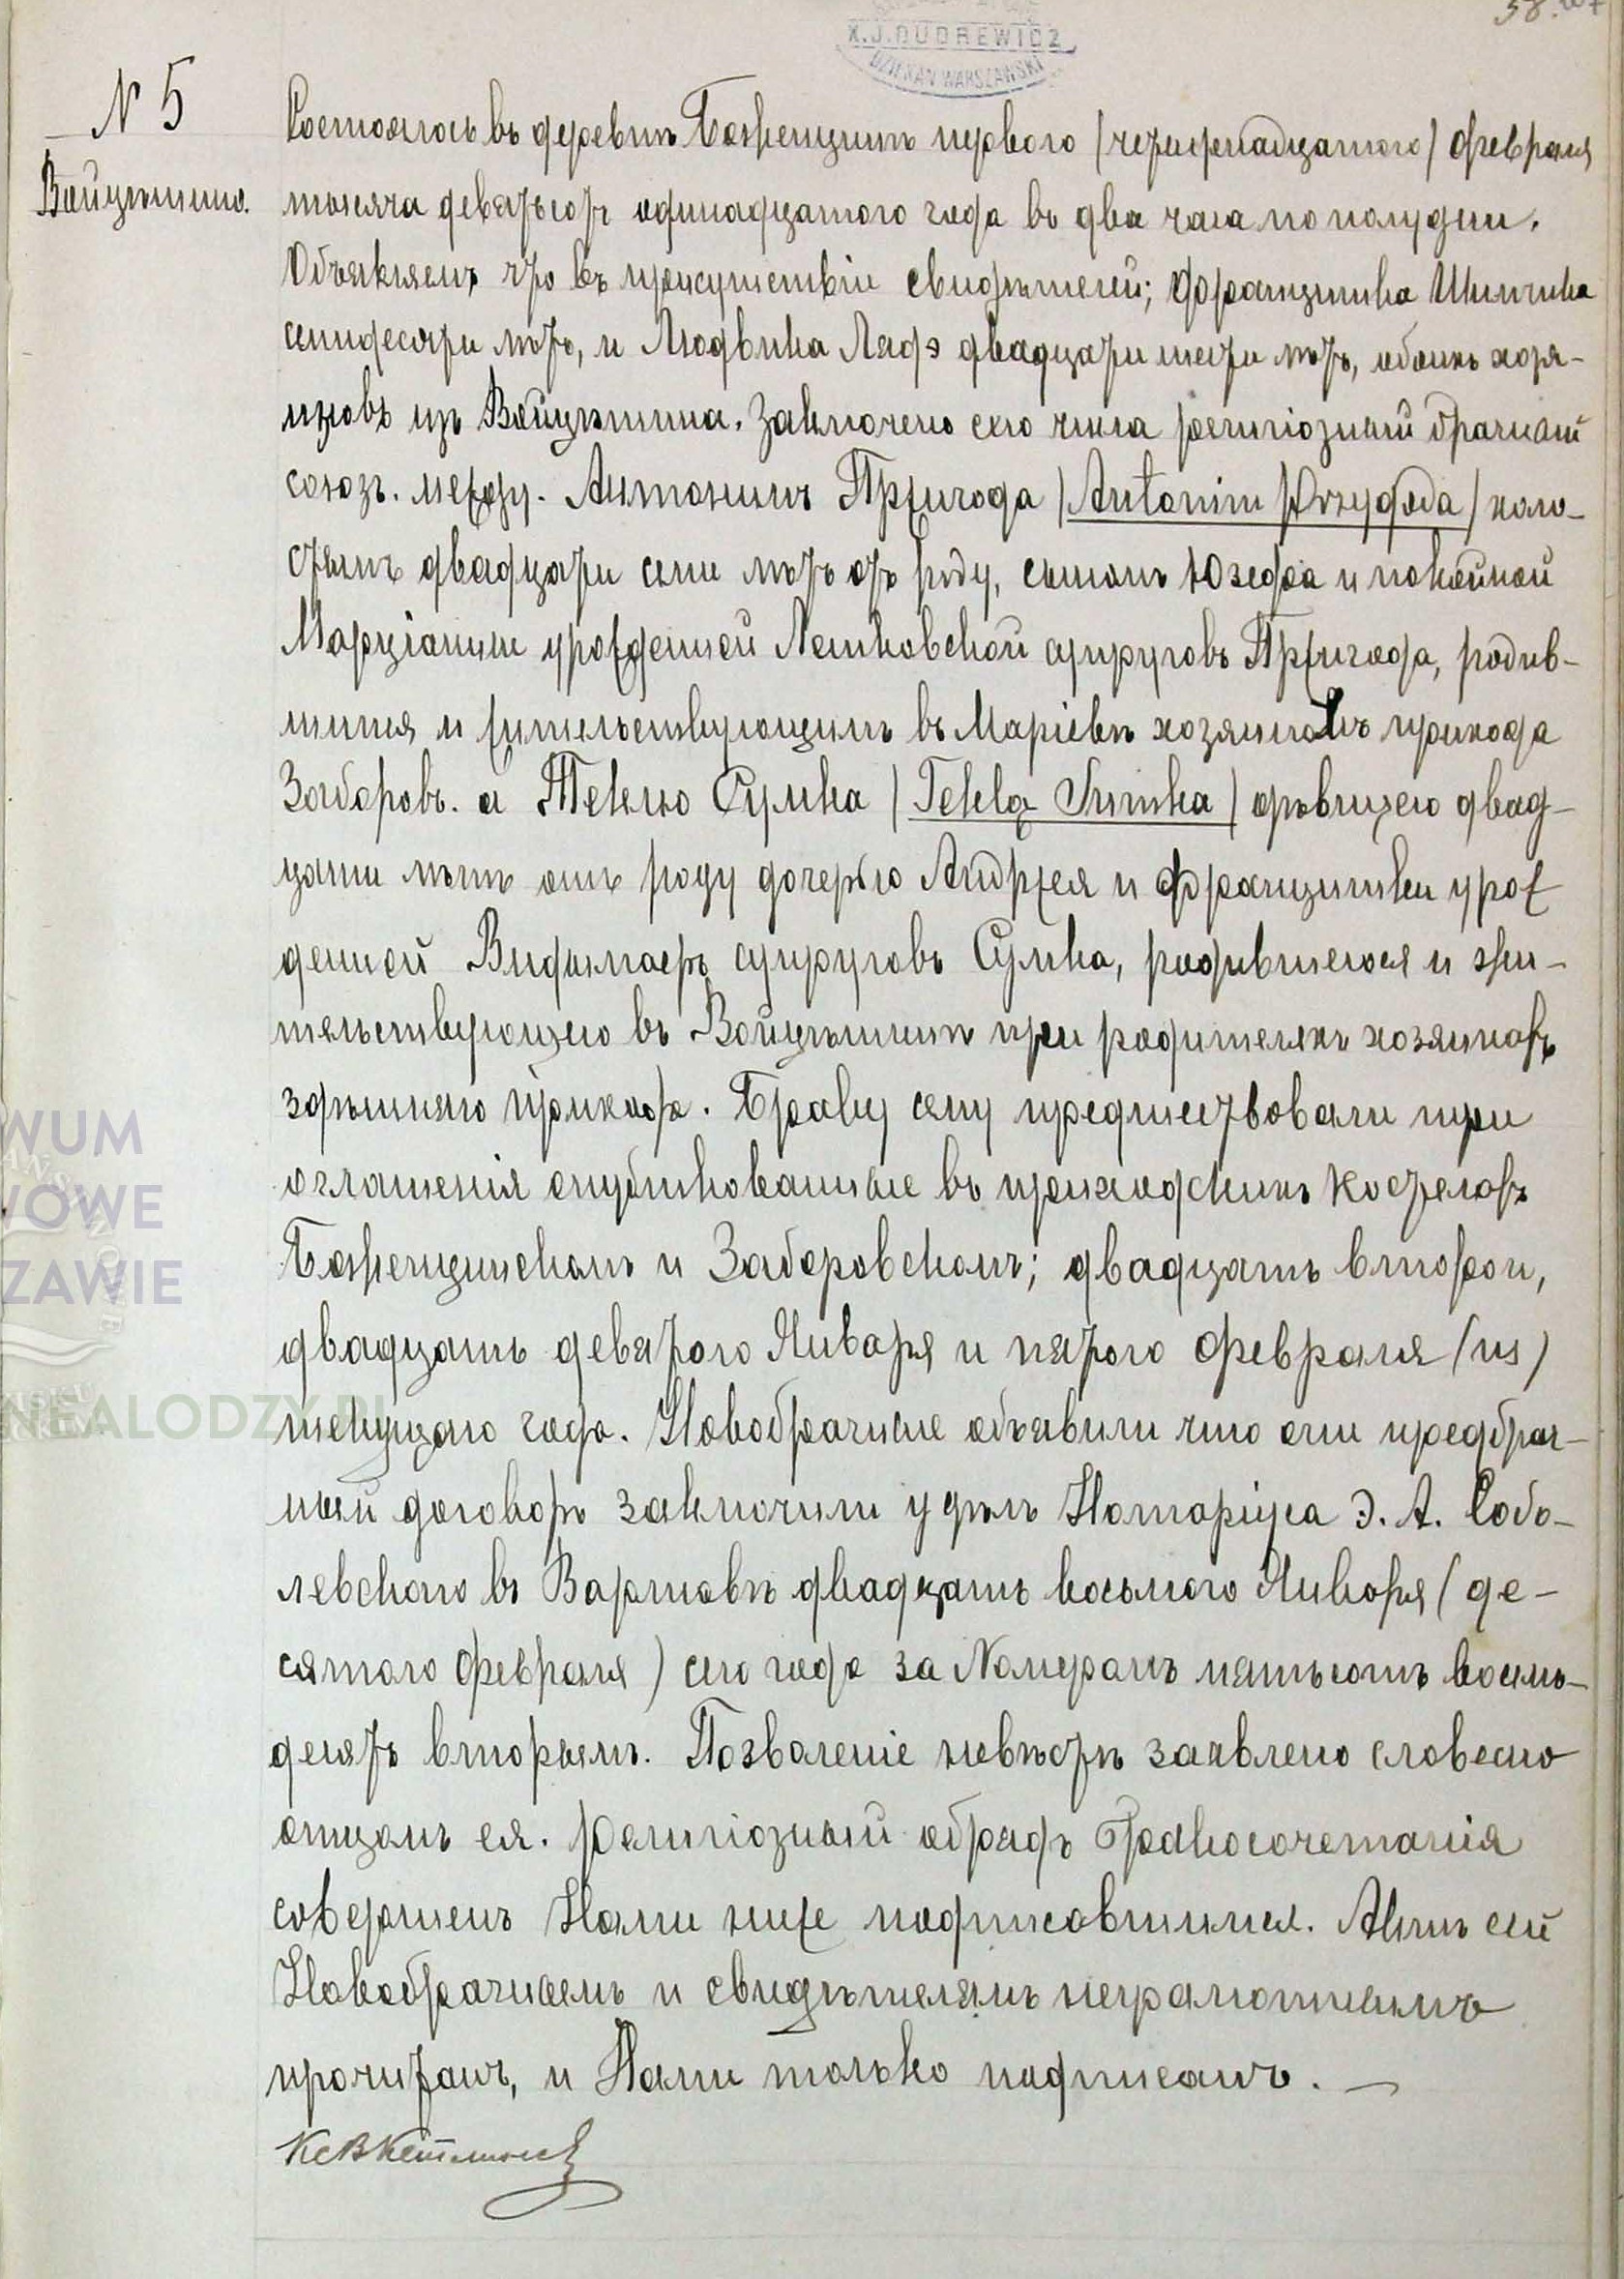 58.
X.J.DUDREWICZ
DZIEKAN WARSZAWSKI
N 5
Войцѣшинъ.
Состоялось въ деревнѣ Боженцинѣ перваго (четырнадцатаго) февраля
тысяча девятьсотъ одинадцатаго года въ два часа по полудни.
Объявляемъ что въ присутствіи свидѣтелей; Францишка Шимчика
семидесяти лѣтъ, и Людвика Лядэ двадцати шести лѣтъ, обоихъ хозя-
иновъ изъ Войцѣшина. Заключено сего числа религіозный брачный
союзъ. между. Антонимъ Пржигода (Antonim Przygoda) холо-
стымъ двадцати семи лѣтъ отъ роду, сыномъ Юзефа и покойной
Марціанны урожденной Лешковской супруговъ Пржигода, родив-
шимся и жительствующимъ въ Маріевѣ хозяиномъ прихода
Заборовъ. а Теклю Сумка (Teklą Sumka) дѣвицею двад-
цати лѣтъ отъ роду дочерью Андржея и Францишки урож
денной супруговъ Сумка, родившеюся и жи-
тельствующею въ Войцѣшинѣ при родителяхъ хозяиновъ
здѣшняго прихода. Браку сему предшествовали три
оглашенія опубликованные въ приходскихъ костелахъ
Боженцинскомъ и Заборовскомъ; двадцать второго,
двадцать девятого Января и пятого февраля (нs)
текущаго года. Новобрачные объявили что они предбрач-
ный договоръ заключили у дѣлъ Нотаріуса Э. А. Собо-
левскаго въ Варшавѣ двадцать восьмого Января (де-
сятаго февраля) сего года за Номеромъ пятьсотъ восемь-
десятъ вторымъ. Позволеніе невѣстѣ заявлено словесно
отцомъ ея. Религіозный обрядъ бракосочетанія
совершенъ Нами ниже подписавшимся. Актъ сей
Новобрачнымъ и свидѣтелямъ неграмотнымъ
прочитанъ, и Нами только подписанъ. —
WUM
WOWE
ZAWIE
NEALODZY.PL